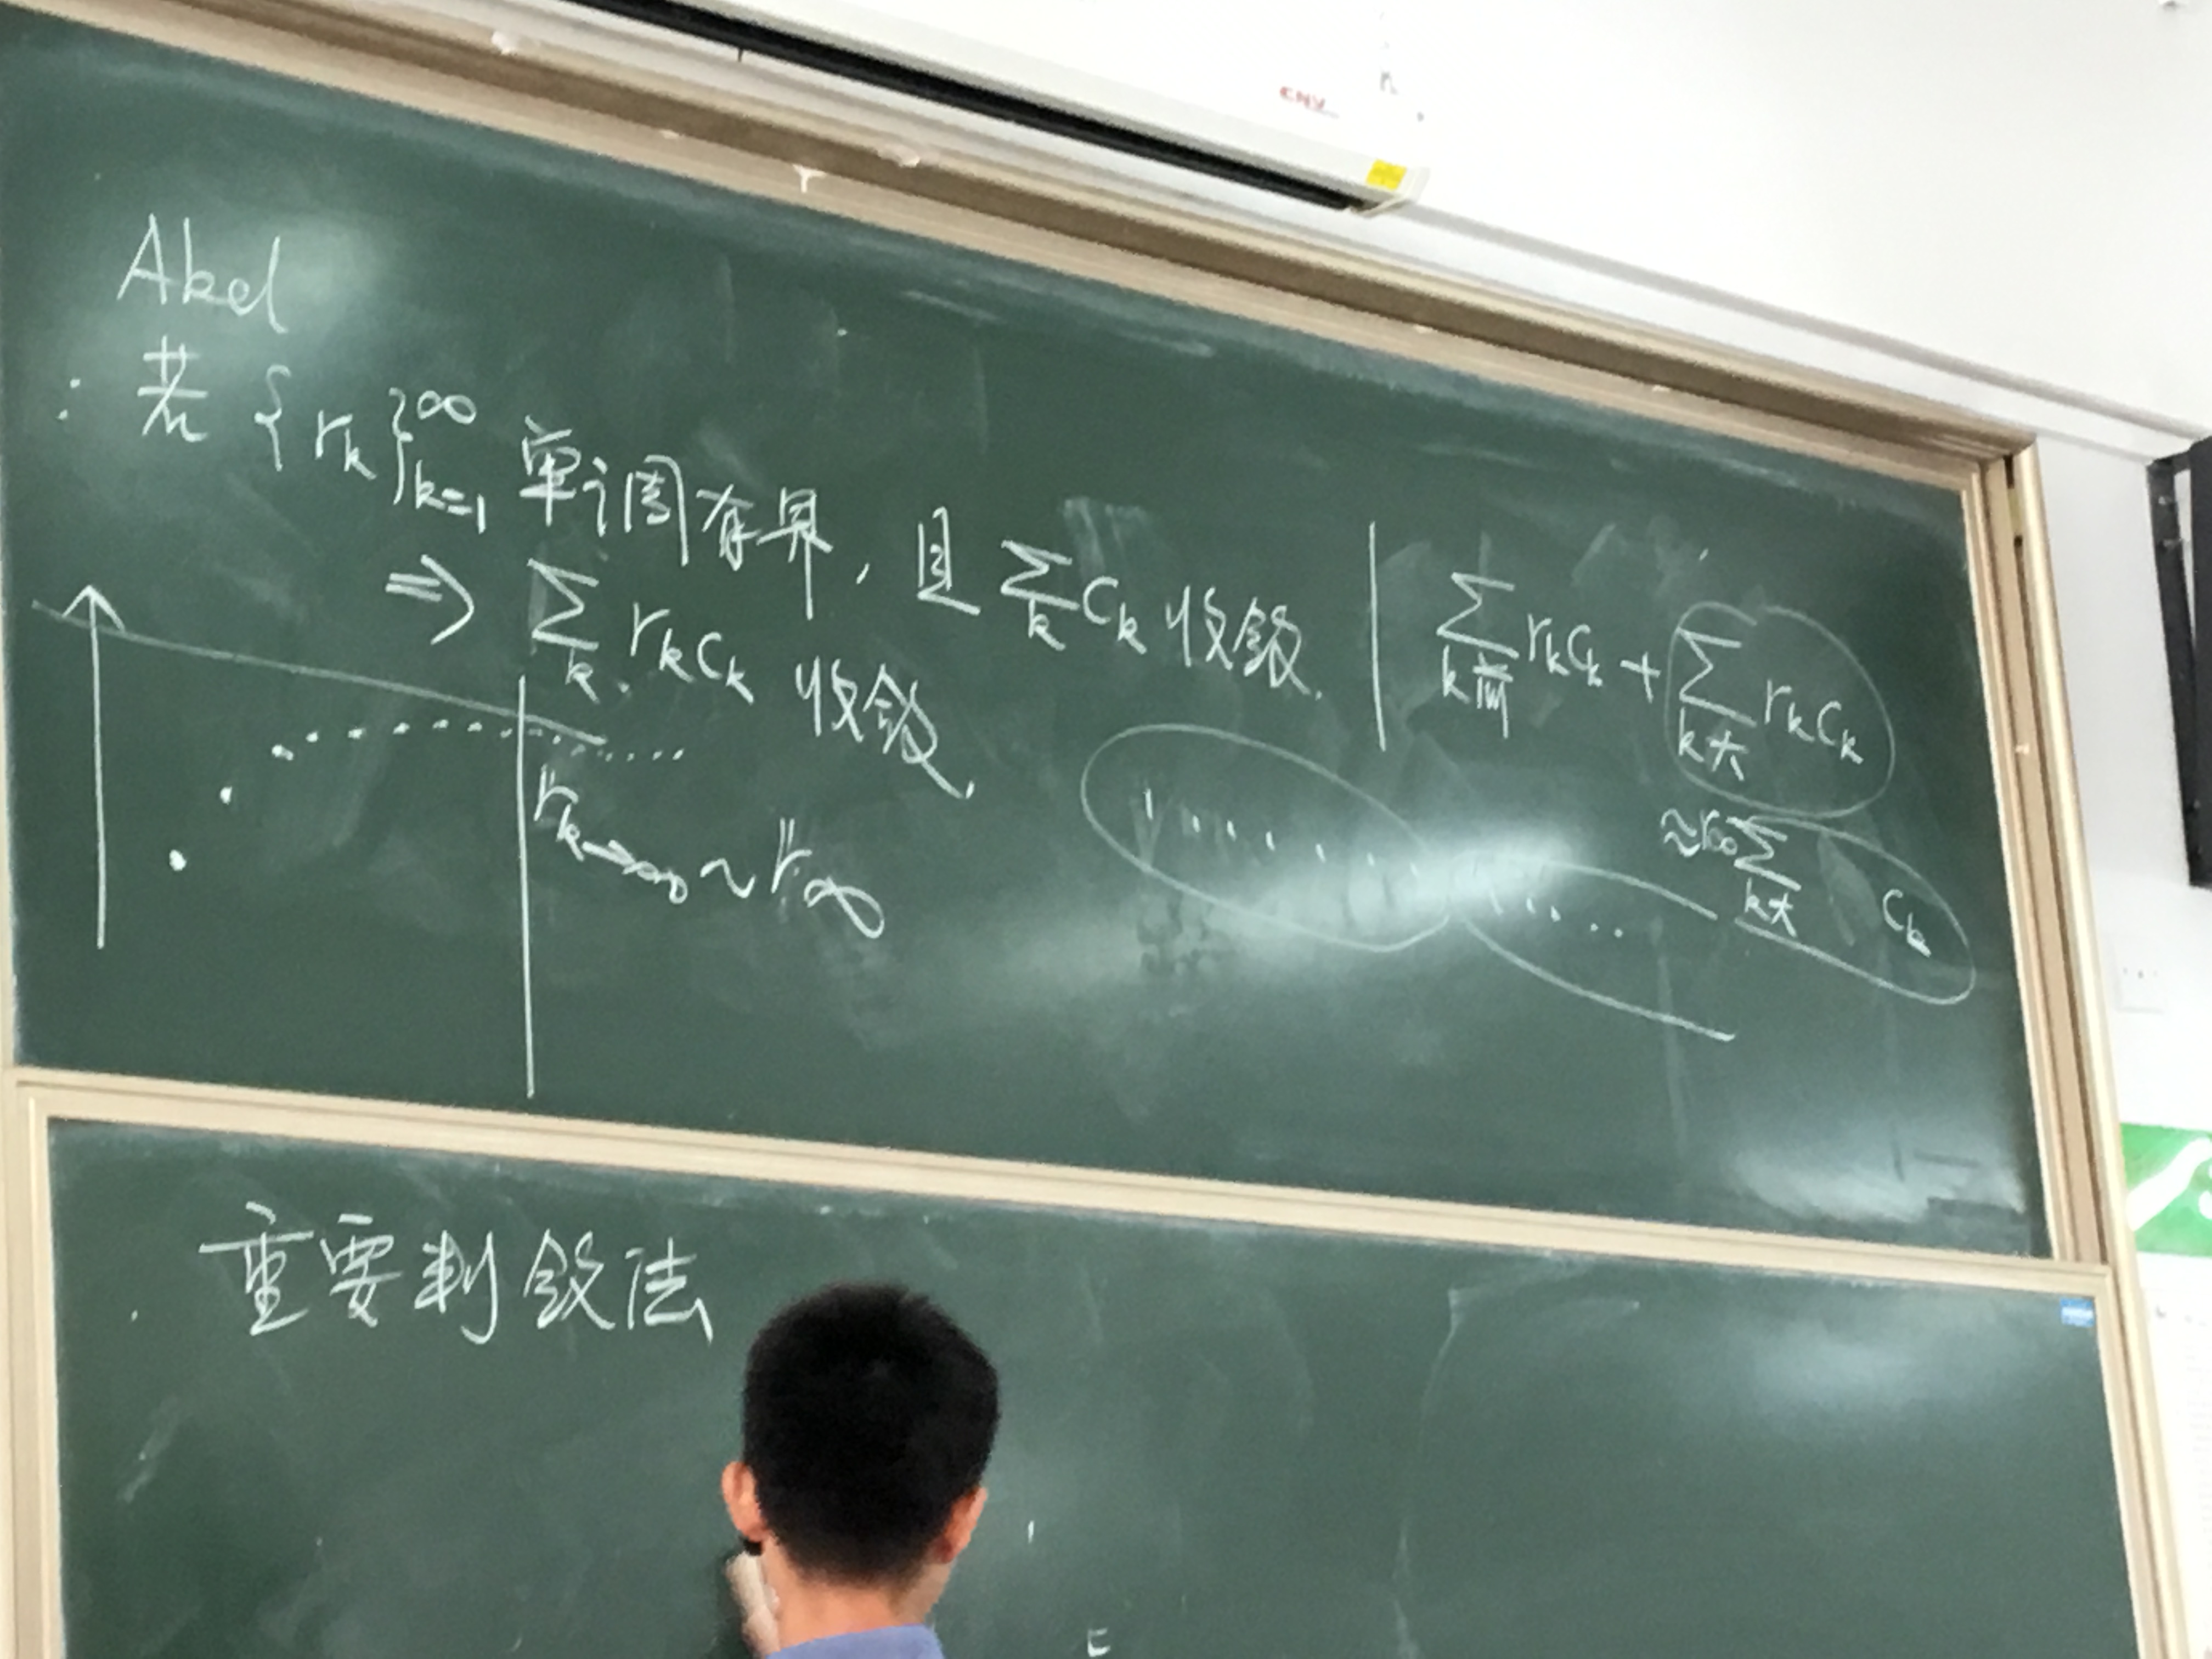 Abel
: 若 {r_k}_{k=1}^∞ 单调有界, 且 ∑_k c_k 收敛.
⇒ ∑_k r_k c_k 收敛.
"r_{k→∞} ~ r_∞"
∑_{k前} r_k c_k + ∑_{k大} r_k c_k
≈ r_∞ ∑_{k大} c_k
重要判敛法